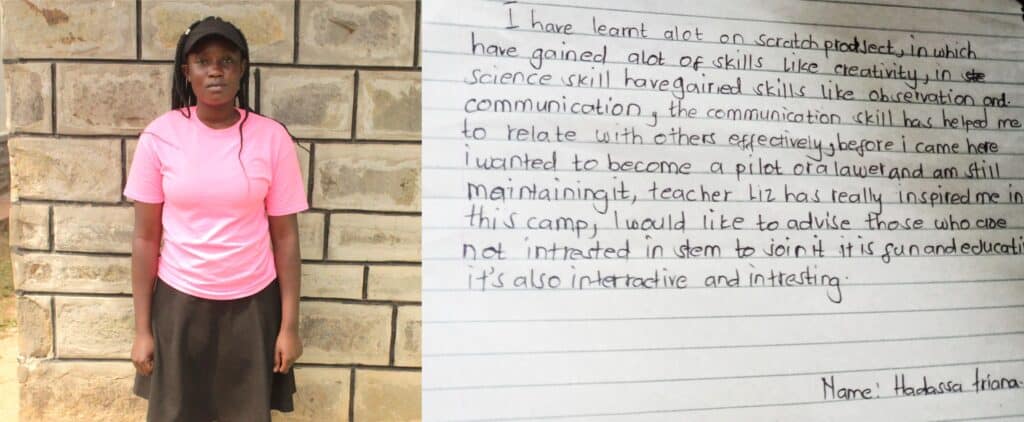 I have learnt alot on scratch prodject, in which
have gained alot of skills like creativity, in
science skill have gained skills like observation and
communication, the communication skill has helped me
to relate with others effectively, before i came here
i wanted to become a pilot or a lawer and am still
maintaining it, teacher Liz has really inspired me in
this camp, I would like to advise those who are
not intrested in stem to join it it is fun and educati
it's also interractive and intresting.
Name: Hadassa triana.